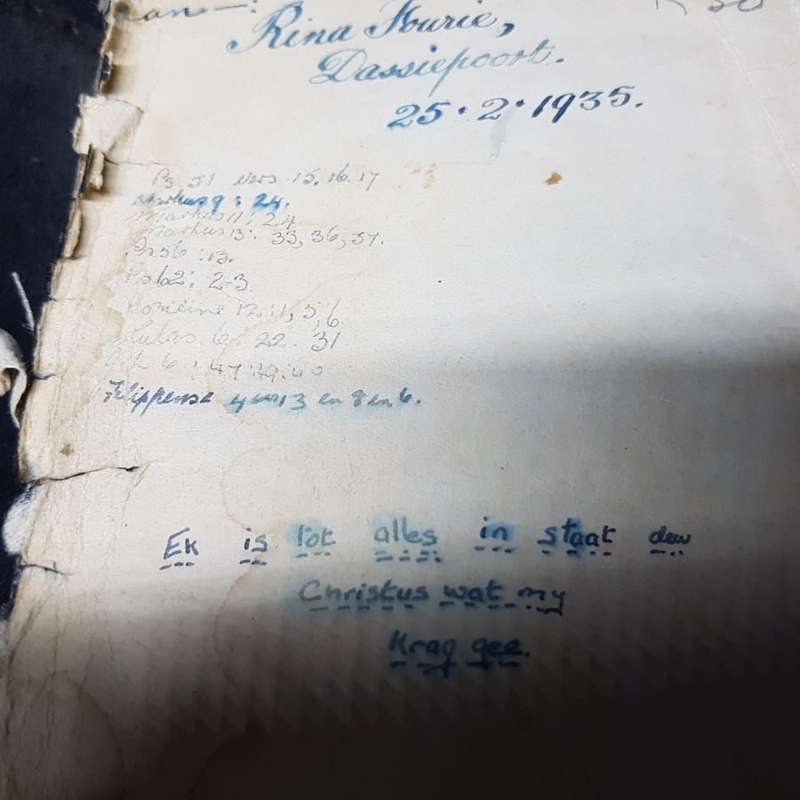 Rina Fourie,
Dassiepoort.
25.2.1935.
Ps 51 vers 15.16.17
Markus 9 : 24.
Markus 11 : 24
Markus 13 : 33, 36, 37.
56 : 13.
Ps 62 : 2-3
12:1, 5,6
Lukas 6 : 22. 31
6 : 47
Filippense 4 13 en 8 en 6.
Ek is tot alles in staat deur
Christus wat my
Krag gee.